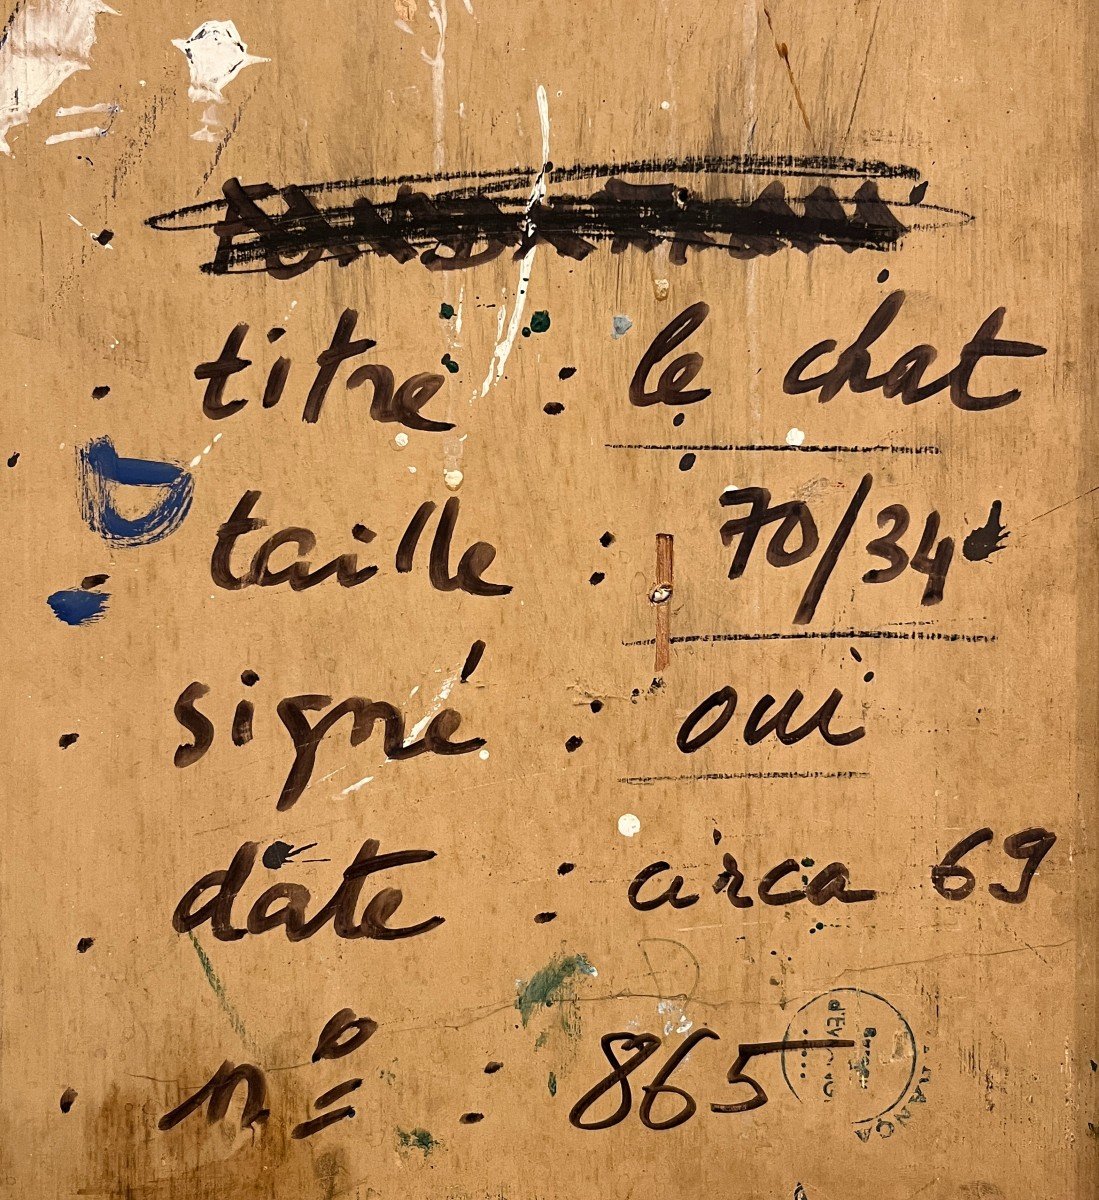 . titre : le chat
. taille : 70/34
. signé : oui
. date : circa 69
. n° : 865